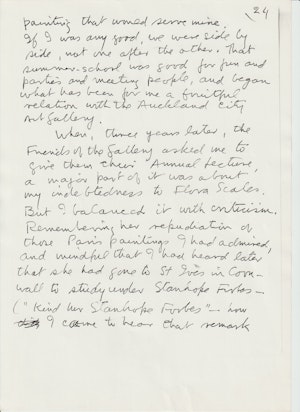 24
painting that would serve mine.
If I was any good, we were side by
side, not one after the other. That
summer-school was good for fun and
parties and meeting people, and began
what has been for me a fruitful
relation with the Auckland City
Art Gallery.
When, three years later, the
Friends of the Gallery asked me to
give them their Annual Lecture,
a major part of it was about
my indebtedness to Flora Scales.
But I balanced it with criticism.
Remembering her repudiation of
those Paris paintings I had admired,
and mindful that I had heard later
that she had gone to St Ives in Corn-
wall to study under Stanhope Forbes —
("Kind Mr Stanhope Forbes" — how
did I come to hear that remark